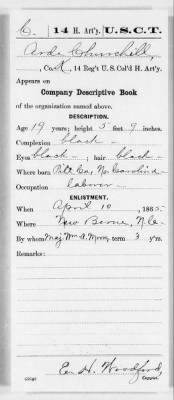 C. 14 H. Art'y. U.S.C.T.
Arde Churchill,
, Co. K, 14 Reg't U. S. Col'd H. Art'y.
Appears on
Company Descriptive Book
of the organization named above.
DESCRIPTION.
Age 19 years; height 5 feet 9 inches.
Complexion black
Eyes black ; hair black
Where born Pitt Co, No Carolina
Occupation laborer
ENLISTMENT.
When April 10, 1865.
Where New Berne, N.C.
By whom Maj Wm A. Moore, term 3 y'rs.
Remarks:
E. H. Woodford,
Copyist.